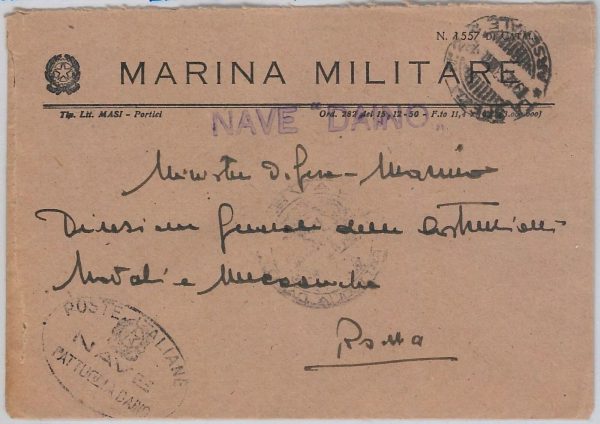 N. 1557 DI CATAL.
MARINA MILITARE
Tip. Lit. MASI - Portici Ord. 282 del 15-12-50 - F.to 11,4 x
NAVE "DAINO"
Ministero Difesa - Marina
Direzione Generale delle Costruzioni
Navali e Meccaniche
Roma
POSTE ITALIANE
NAVE
PATTUGLIA DAINO